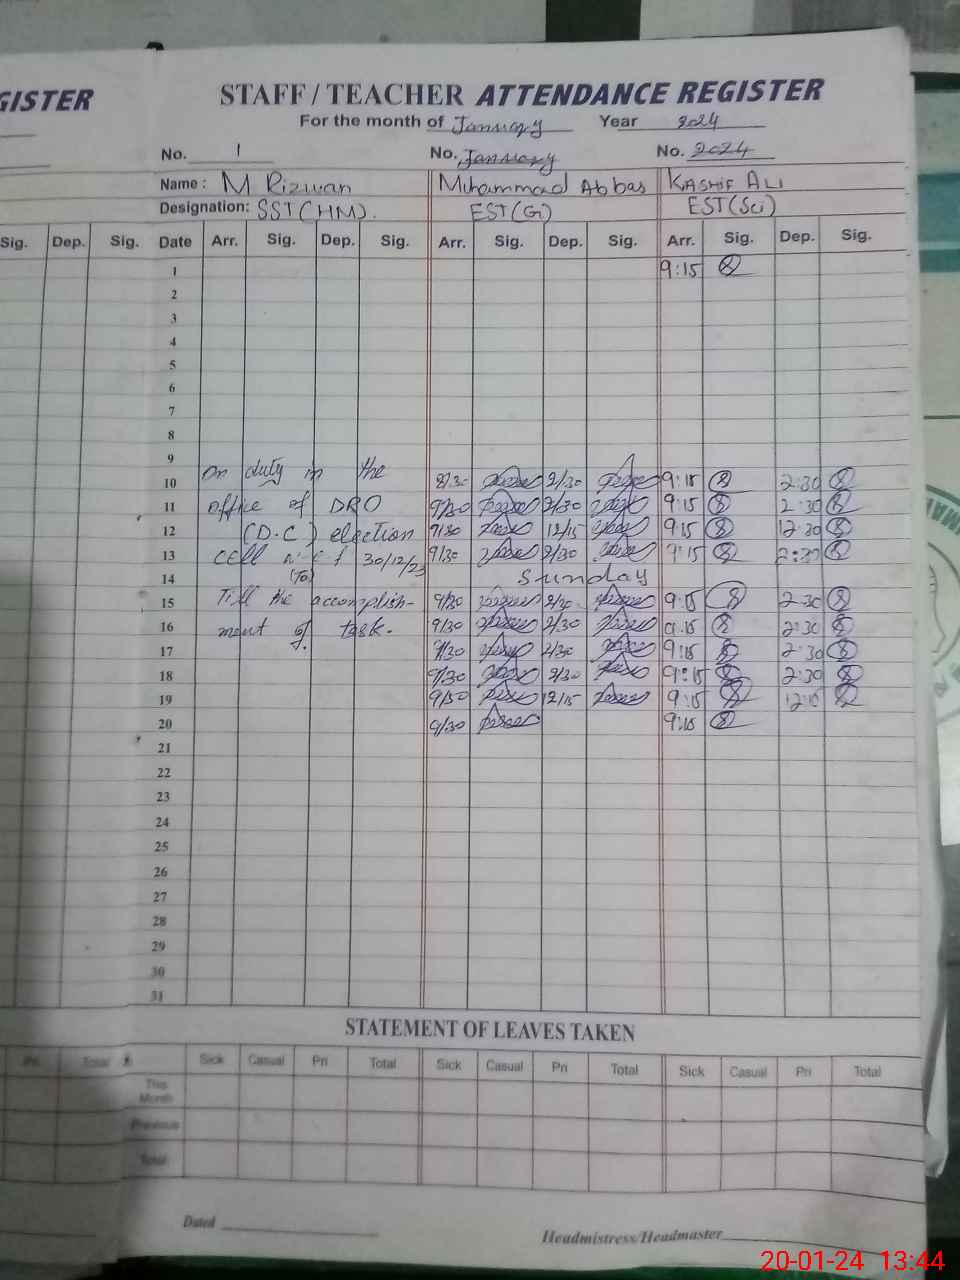 GISTER
STAFF / TEACHER ATTENDANCE REGISTER
For the month of January Year 2024
No. 1 No. January No. 2024
Name : M Rizwan Muhammad Abbas KASHIF ALI
Designation: SST (HM). EST (G) EST (Sci)
Sig. Dep. Sig. Date Arr. Sig. Dep. Sig. Arr. Sig. Dep. Sig. Arr. Sig. Dep. Sig.
1 9:15
2
3
4
5
6
7
8
9
10 On duty in the 9/30 2/30 9:15 2:30
11 office of DRO 9/30 2/30 9:15 2:30
12 (D.C) election 9/30 12/15 9:15 12:30
13 cell w.e.f 30/12/23 9/30 2/30 9:15 2:30
14 (To) Sunday
15 Till the accomplish- 9/30 2/30 9:15 2:30
16 ment of task. 9/30 2/30 9:15 2:30
17 9/30 2/30 9:15 2:30
18 9/30 2/30 9:15 2:30
19 9/30 12/15 9:15
20 9/30 9:15
21
22
23
24
25
26
27
28
29
30
31
STATEMENT OF LEAVES TAKEN
Pri Total Sick Casual Pri Total Sick Casual Pri Total Sick Casual Pri Total
This Month
Previous
Total
Dated
Headmistress/Headmaster
20-01-24 13:44